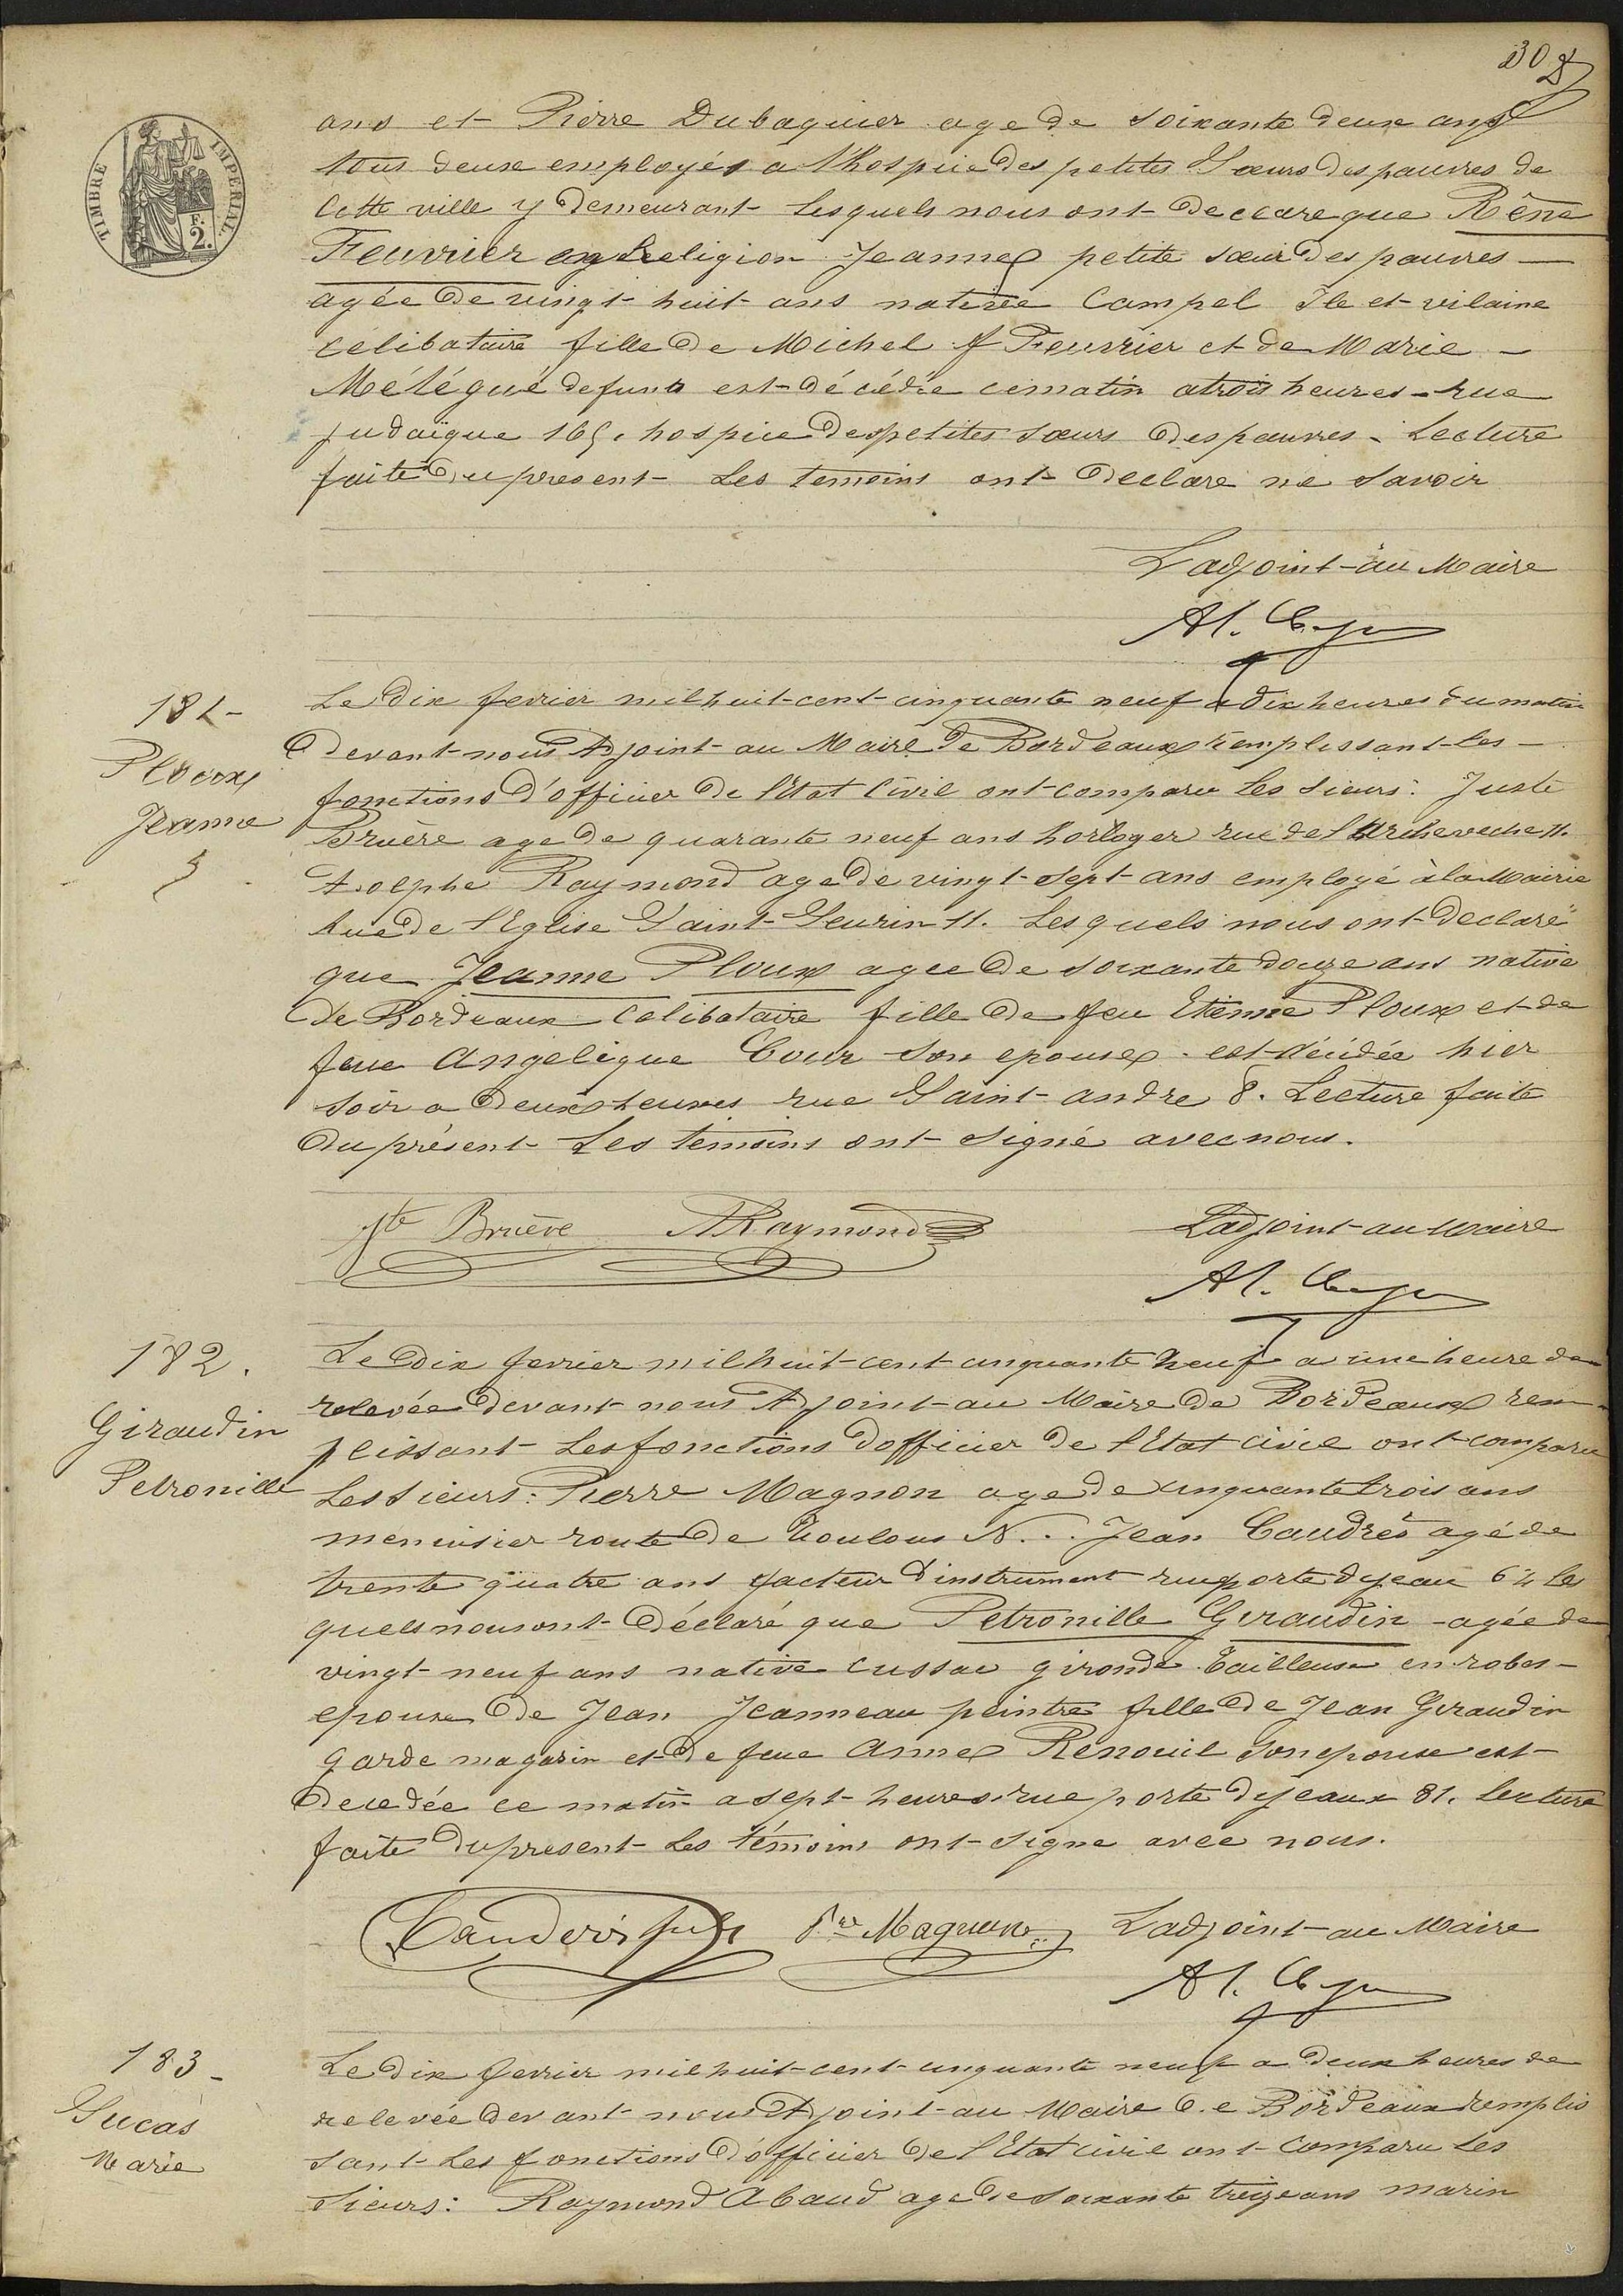 30
TIMBRE IMPERIAL
F.
2.
ans et Pierre Dubaquier age de soixante deux ans
tous deux employés a l'hospice des petites Sœurs des pauvres de
Cette ville y demeurant Lesquels nous ont declare que Rêne
Feuvrier en Religion Jeanne petite sœur des pauvres
agée de vingt-huit ans native Campel Ile et-vilaine
célibataire fille de Michel Feuvrier et de Marie
Mélégué defunts est décédée ce matin a trois heures rue
judaïque 165. hospice des petites sœurs des pauvres. Lecture
faite du present Les temoins ont Declare ne Savoir
L'adjoint au Maire
181
Ploux
Jeanne
Le dix fevrier mil huit cent cinquante neuf a dix heures du matin
devant nous Adjoint au Maire de Bordeaux remplissant les
fonctions d'officier de l'Etat Civil ont comparu Les Sieurs: Juste
Bruère age de quarante neuf ans horloger rue de l'Archeveche 11.
Adolphe Raymond age de vingt-sept ans employé à la Mairie
Rue de l'Eglise Saint-Seurin 11. Lesquels nous ont declaré
que Jeanne Ploux agee de soixante douze ans native
de Bordeaux Celibataire fille de feu Etienne Ploux et de
feue Angelique Cour son epouse est décédée hier
soir a deux heures rue Saint-andre 8. Lecture faite
du présent Les temoins ont signé avec nous.
Jte Bruère ARaymond L'adjoint au Maire
182.
Giraudin
Petronille
Le dix fevrier mil huit cent cinquante neuf a une heure de
relevée devant nous Adjoint au Maire de Bordeaux rem-
plissant Les fonctions d'officier de l'Etat civil ont comparu
Les Sieurs: Pierre Magnon age de cinquante trois ans
menuisier route de Toulouse N.. Jean Caudrès agé de
trente quatre ans facteur d'instrument rue porte dijeau 64 Les
quels nous ont Déclaré que Petronille Giraudin agée de
vingt-neuf ans native cussac gironde Tailleuse en robes
epouse de Jean Jeanneau peintre fille de Jean Giraudin
garde magasin et de feue Anne Renouil son epouse est
decedée ce matin a sept heures rue porte dijeaux 81. Lecture
faite du present Les témoins ont signe avec nous.
Pre Magnon L'adjoint au Maire
183
Lucas
Marie
Le dix fevrier mil huit cent cinquante neuf a deux heures de
relevée devant nous Adjoint au Maire de Bordeaux remplis
sant Les fonctions d'officier de l'Etat civil ont Comparu Les
Sieurs: Raymond Abaud age de soixante treize ans marin